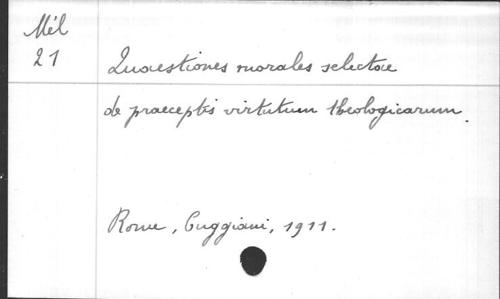 Mél
21
Quaestiones morales selectae
de praeceptis virtutum theologicarum.
Rome, Cuggiani, 1911.